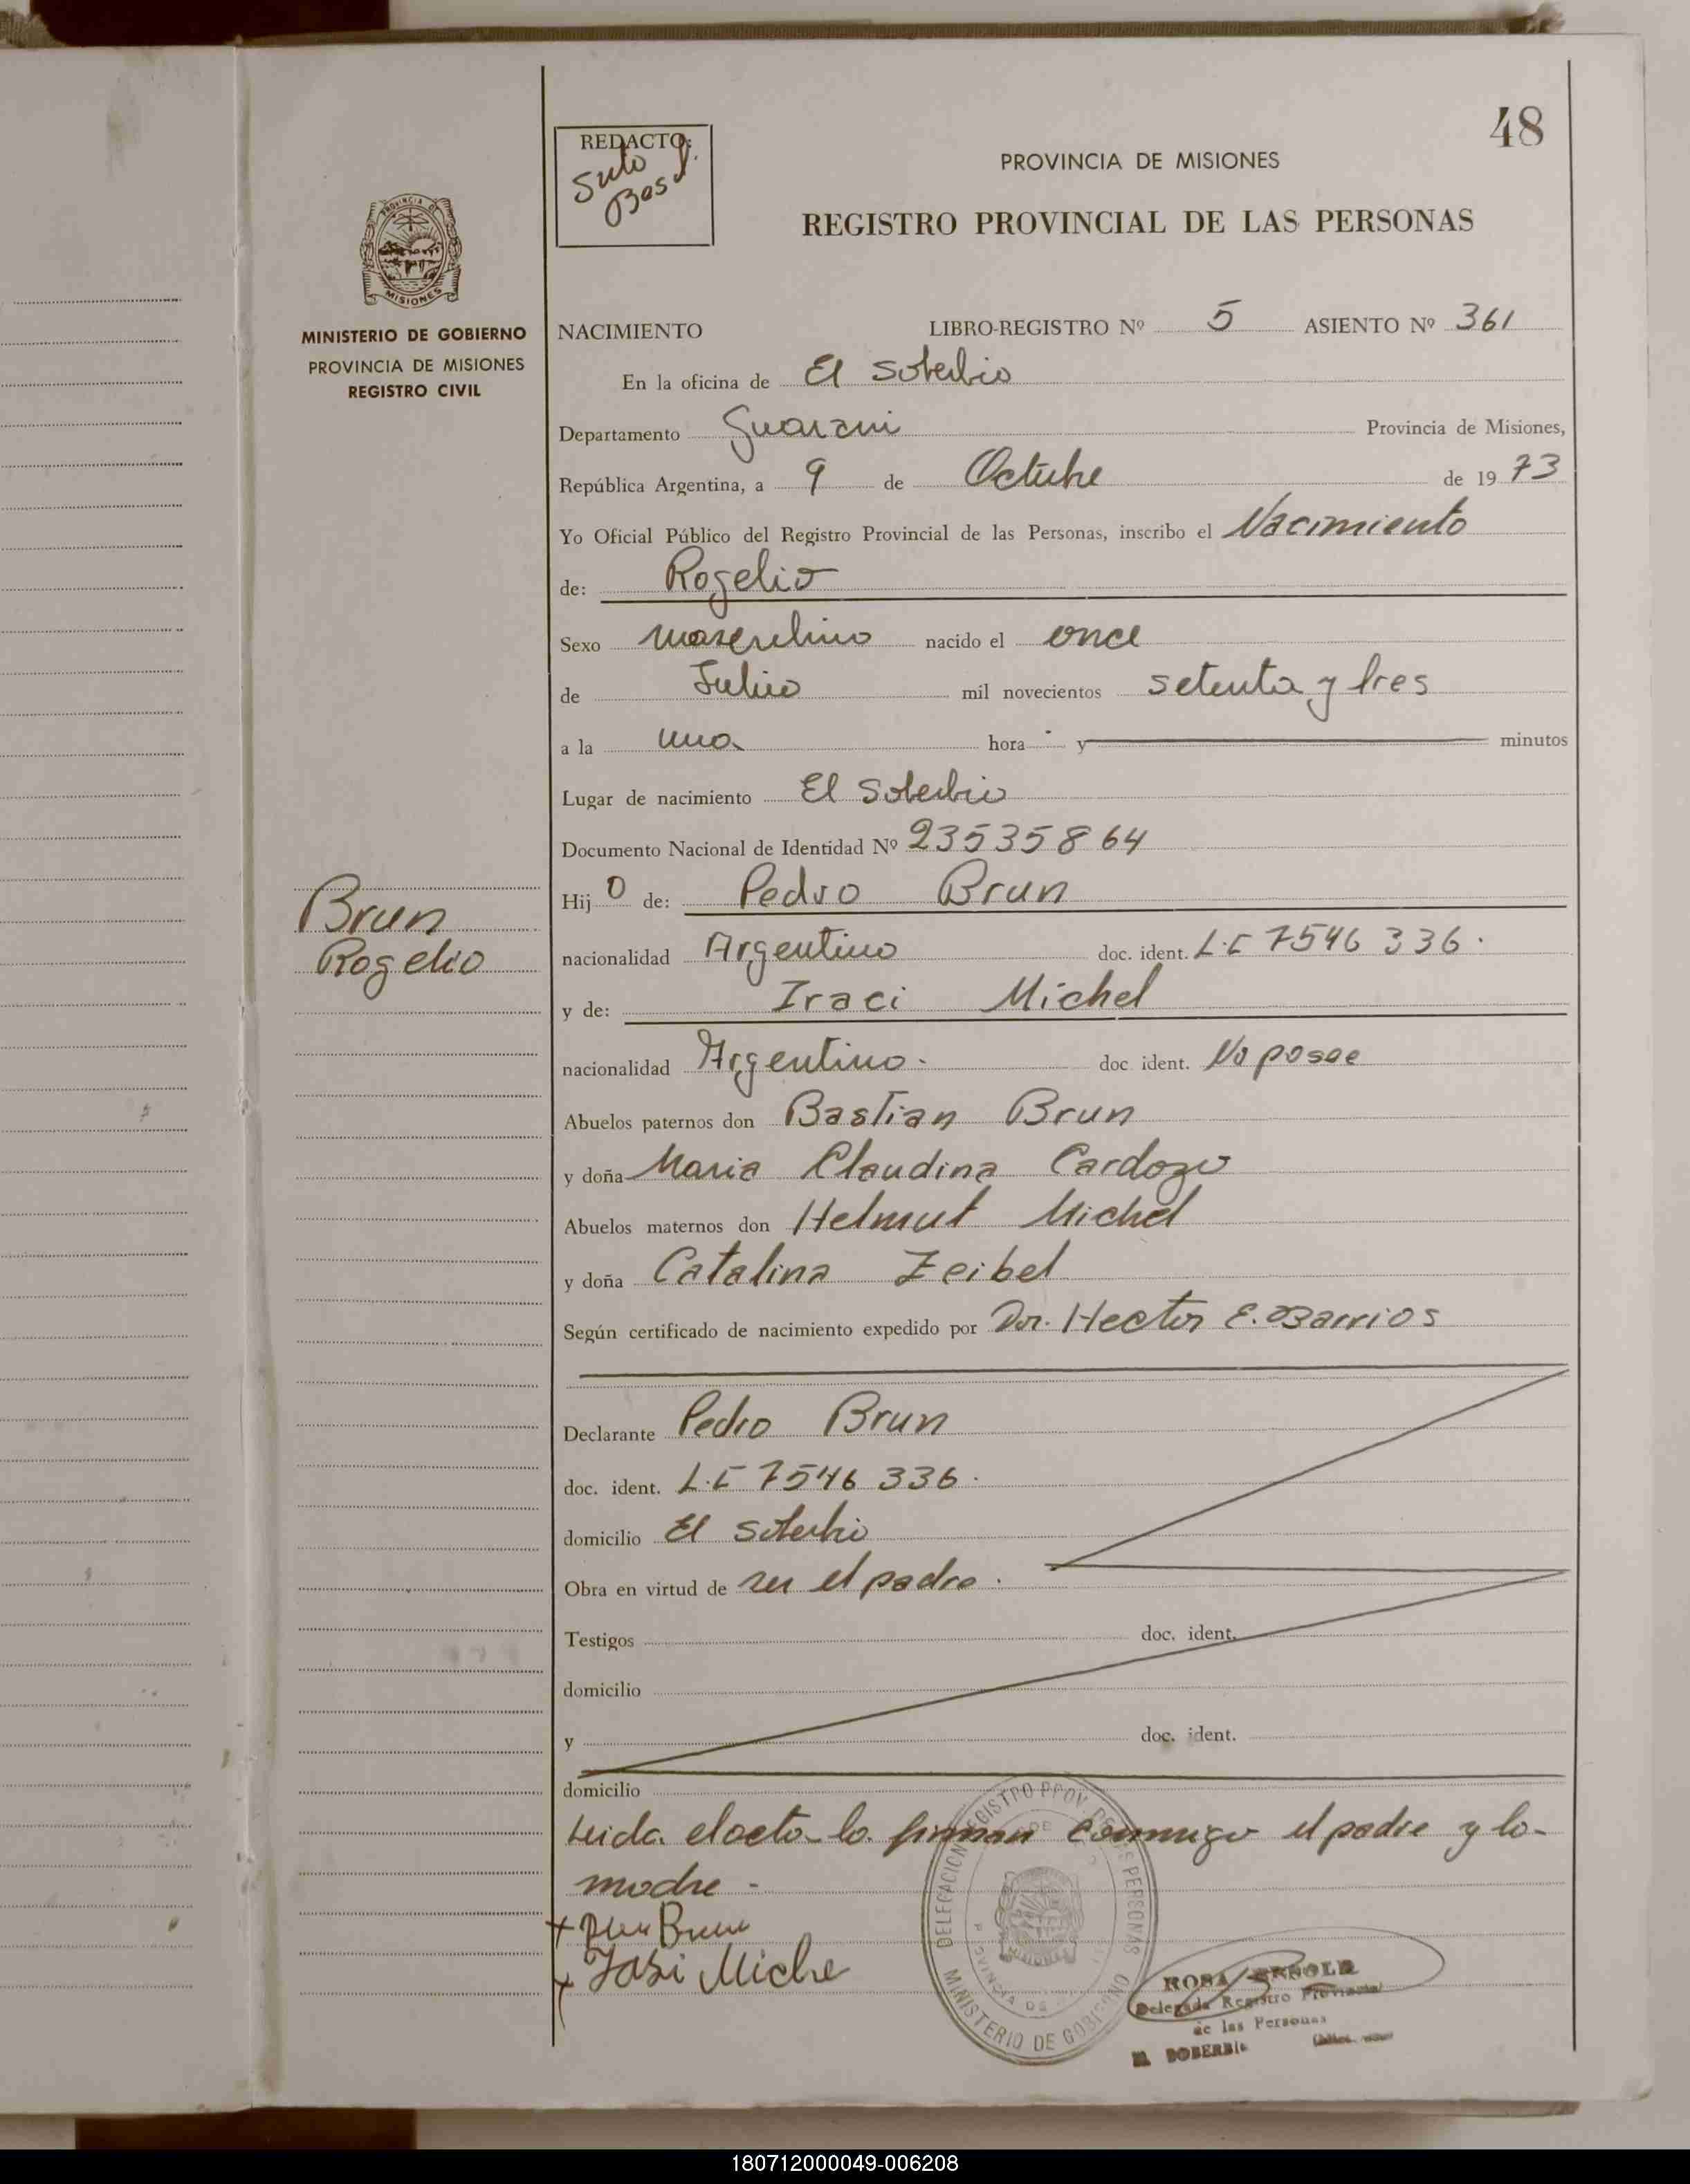 48
REDACTO:
Suto
Bas
PROVINCIA DE MISIONES
REGISTRO PROVINCIAL DE LAS PERSONAS
PROVINCIA DE
MISIONES
MINISTERIO DE GOBIERNO
PROVINCIA DE MISIONES
REGISTRO CIVIL
NACIMIENTO LIBRO-REGISTRO Nº 5 ASIENTO Nº 361
En la oficina de El Soberbio
Departamento Guarani Provincia de Misiones,
República Argentina, a 9 de Octubre de 1973
Yo Oficial Público del Registro Provincial de las Personas, inscribo el Nacimiento
de: Rogelio
Sexo masculino nacido el once
de Julio mil novecientos setenta y tres
a la una hora y minutos
Lugar de nacimiento El Soberbio
Documento Nacional de Identidad Nº 23535864
Hijo de: Pedro Brun
Brun
Rogelio
nacionalidad Argentino doc. ident. L.E 7546 336.
y de: Iraci Michel
nacionalidad Argentino. doc ident. No posee
Abuelos paternos don Bastian Brun
y doña Maria Claudina Cardozo
Abuelos maternos don Helmut Michel
y doña Catalina Zeibel
Según certificado de nacimiento expedido por Dr. Hector E. Barrios
Declarante Pedro Brun
doc. ident. L.E 7546 336.
domicilio El Soberbio
Obra en virtud de ser el padre.
Testigos doc. ident.
domicilio
y doc. ident.
domicilio
Leida el acta lo firman conmigo el padre y la
madre -
Brun
Miche
DELEGACION REGISTRO PROV. DE LAS PERSONAS
PROVINCIA DE
MISIONES
MINISTERIO DE GOBIERNO
ROSA
Delegada Registro Provincial
de las Personas
EL SOBERBIO
180712000049-006208